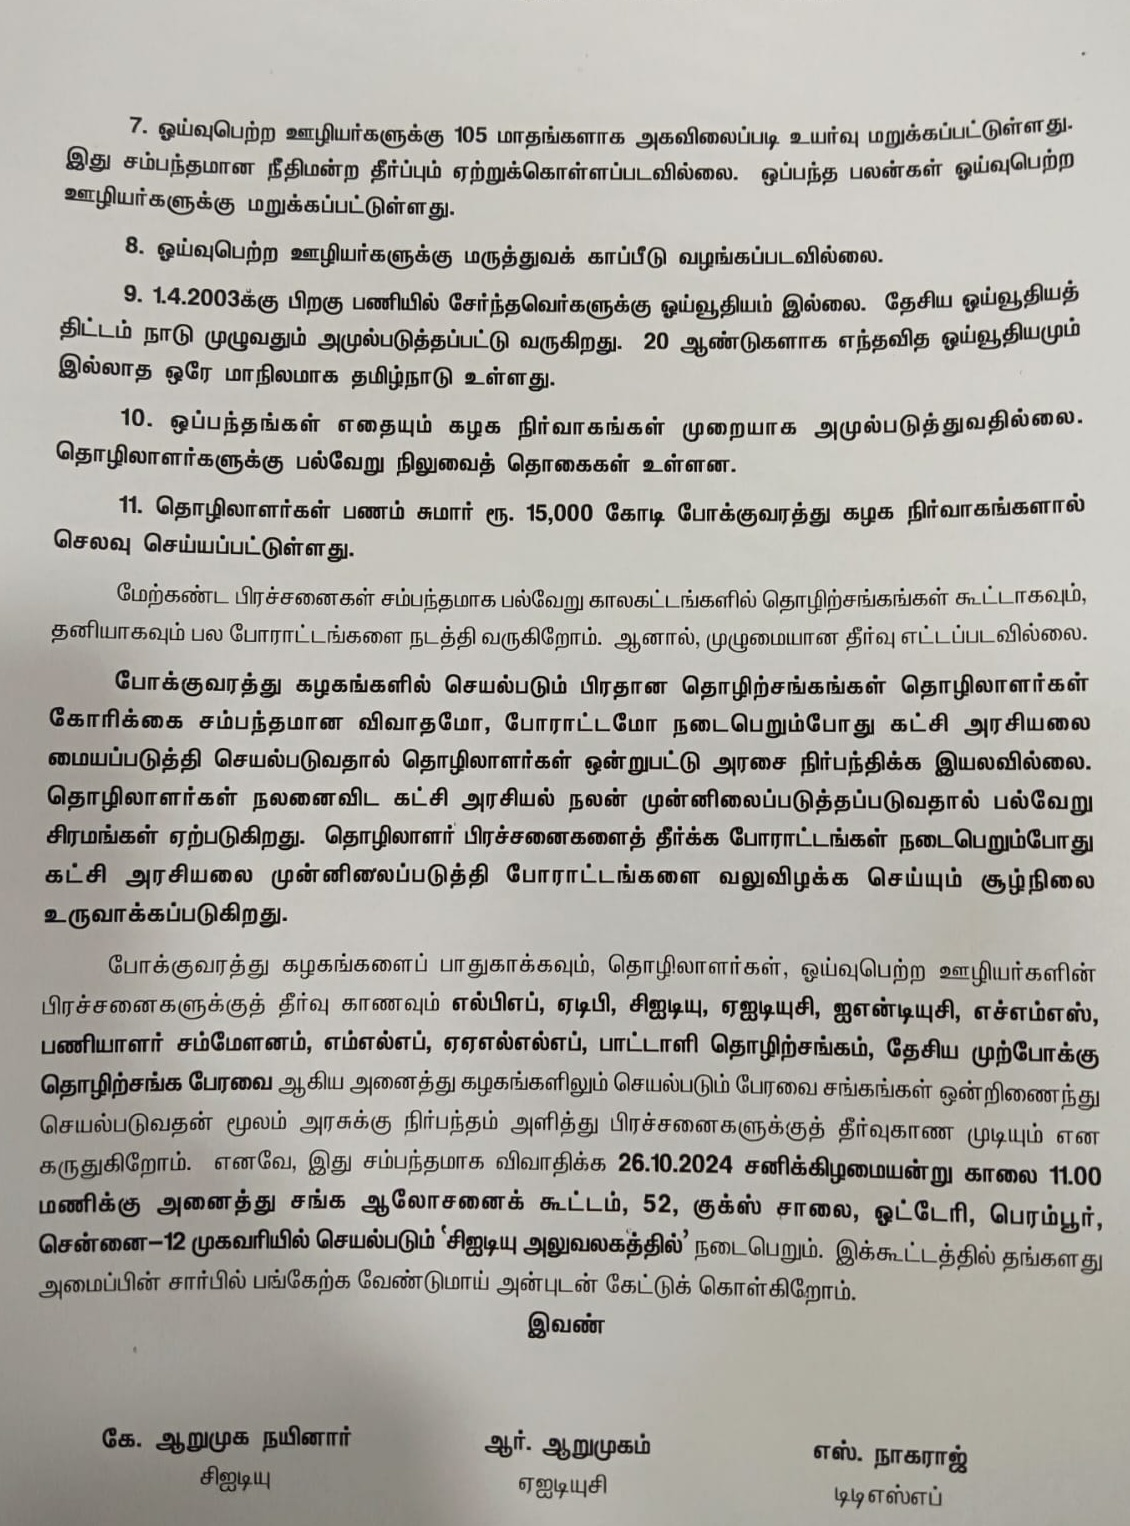 7. ஓய்வுபெற்ற ஊழியர்களுக்கு 105 மாதங்களாக அகவிலைப்படி உயர்வு மறுக்கப்பட்டுள்ளது.
இது சம்பந்தமான நீதிமன்ற தீர்ப்பும் ஏற்றுக்கொள்ளப்படவில்லை. ஒப்பந்த பலன்கள் ஓய்வுபெற்ற
ஊழியர்களுக்கு மறுக்கப்பட்டுள்ளது.
8. ஓய்வுபெற்ற ஊழியர்களுக்கு மருத்துவக் காப்பீடு வழங்கப்படவில்லை.
9. 1.4.2003க்கு பிறகு பணியில் சேர்ந்தவெர்களுக்கு ஓய்வூதியம் இல்லை. தேசிய ஓய்வூதியத்
திட்டம் நாடு முழுவதும் அமுல்படுத்தப்பட்டு வருகிறது. 20 ஆண்டுகளாக எந்தவித ஓய்வூதியமும்
இல்லாத ஒரே மாநிலமாக தமிழ்நாடு உள்ளது.
10. ஒப்பந்தங்கள் எதையும் கழக நிர்வாகங்கள் முறையாக அமுல்படுத்துவதில்லை.
தொழிலாளர்களுக்கு பல்வேறு நிலுவைத் தொகைகள் உள்ளன.
11. தொழிலாளர்கள் பணம் சுமார் ரூ. 15,000 கோடி போக்குவரத்து கழக நிர்வாகங்களால்
செலவு செய்யப்பட்டுள்ளது.
மேற்கண்ட பிரச்சனைகள் சம்பந்தமாக பல்வேறு காலகட்டங்களில் தொழிற்சங்கங்கள் கூட்டாகவும்,
தனியாகவும் பல போராட்டங்களை நடத்தி வருகிறோம். ஆனால், முழுமையான தீர்வு எட்டப்படவில்லை.
போக்குவரத்து கழகங்களில் செயல்படும் பிரதான தொழிற்சங்கங்கள் தொழிலாளர்கள்
கோரிக்கை சம்பந்தமான விவாதமோ, போராட்டமோ நடைபெறும்போது கட்சி அரசியலை
மையப்படுத்தி செயல்படுவதால் தொழிலாளர்கள் ஒன்றுபட்டு அரசை நிர்பந்திக்க இயலவில்லை.
தொழிலாளர்கள் நலனைவிட கட்சி அரசியல் நலன் முன்னிலைப்படுத்தப்படுவதால் பல்வேறு
சிரமங்கள் ஏற்படுகிறது. தொழிலாளர் பிரச்சனைகளைத் தீர்க்க போராட்டங்கள் நடைபெறும்போது
கட்சி அரசியலை முன்னிலைப்படுத்தி போராட்டங்களை வலுவிழக்க செய்யும் சூழ்நிலை
உருவாக்கப்படுகிறது.
போக்குவரத்து கழகங்களைப் பாதுகாக்கவும், தொழிலாளர்கள், ஓய்வுபெற்ற ஊழியர்களின்
பிரச்சனைகளுக்குத் தீர்வு காணவும் எல்பிஎப், ஏடிபி, சிஐடியு, ஏஐடியுசி, ஐஎன்டியுசி, எச்எம்எஸ்,
பணியாளர் சம்மேளனம், எம்எல்எப், ஏஏஎல்எல்எப், பாட்டாளி தொழிற்சங்கம், தேசிய முற்போக்கு
தொழிற்சங்க பேரவை ஆகிய அனைத்து கழகங்களிலும் செயல்படும் பேரவை சங்கங்கள் ஒன்றிணைந்து
செயல்படுவதன் மூலம் அரசுக்கு நிர்பந்தம் அளித்து பிரச்சனைகளுக்குத் தீர்வுகாண முடியும் என
கருதுகிறோம். எனவே, இது சம்பந்தமாக விவாதிக்க 26.10.2024 சனிக்கிழமையன்று காலை 11.00
மணிக்கு அனைத்து சங்க ஆலோசனைக் கூட்டம், 52, குக்ஸ் சாலை, ஓட்டேரி, பெரம்பூர்,
சென்னை-12 முகவரியில் செயல்படும் 'சிஐடியு அலுவலகத்தில்' நடைபெறும். இக்கூட்டத்தில் தங்களது
அமைப்பின் சார்பில் பங்கேற்க வேண்டுமாய் அன்புடன் கேட்டுக் கொள்கிறோம்.
இவண்
கே. ஆறுமுக நயினார் ஆர். ஆறுமுகம் எஸ். நாகராஜ்
சிஐடியு ஏஐடியுசி டிடிஎஸ்எப்